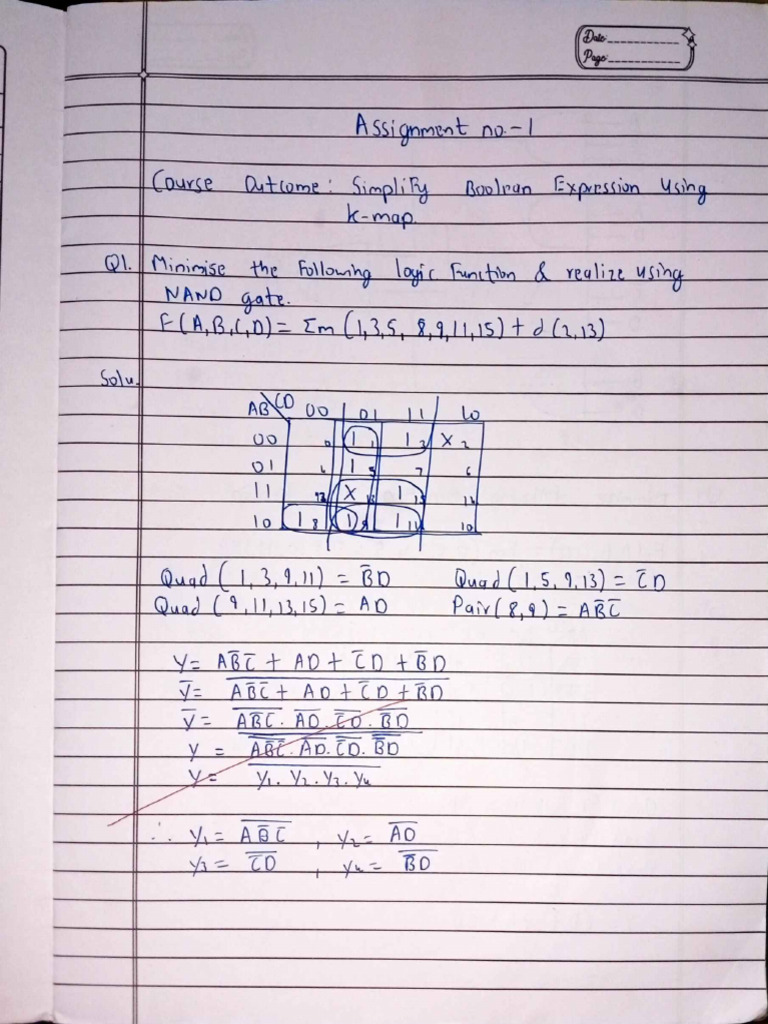 Date:
Page:
Assignment no.-1
Course Outcome: Simplify Boolean Expression Using
k-map.
Q1. Minimise the following logic function & realize using
NAND gate.
F(A,B,C,D) = Σm (1,3,5, 8,9,11,15) + d (2,13)
Solu.
AB\CD 00 01 11 10
00 0 1 1 1 3 X 2
01 4 1 5 7 6
11 12 X 13 1 15 14
10 1 8 1 9 1 11 10
Quad (1,3,9,11) = B̅D Quad (1,5,9,13) = C̅D
Quad (9,11,13,15) = AD Pair(8,9) = AB̅C̅
Y = AB̅C̅ + AD + C̅D + B̅D
Y̅ = \overline{AB̅C̅ + AD + C̅D + B̅D}
Y̅ = \overline{AB̅C̅} . \overline{AD} . \overline{C̅D} . \overline{B̅D}
Y = \overline{\overline{AB̅C̅} . \overline{AD} . \overline{C̅D} . \overline{B̅D}}
Y = \overline{Y₁ . Y₂ . Y₃ . Y₄}
∴ Y₁ = \overline{AB̅C̅} , Y₂ = \overline{AD}
Y₃ = \overline{C̅D} , Y₄ = \overline{B̅D}